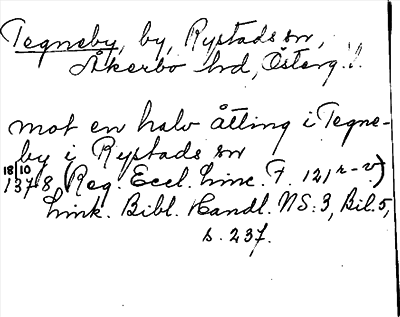 Tegneby, by, Rystads sn,
Åkerbo hd, Österg. l.
mot en halv åtting i Tegne-
by i Rystads sn
18/10
1378 (Reg. Eccl. Linc. F. 121 r-v)
Link. Bibl. Handl. NS:3, Bil. 5,
s. 237.